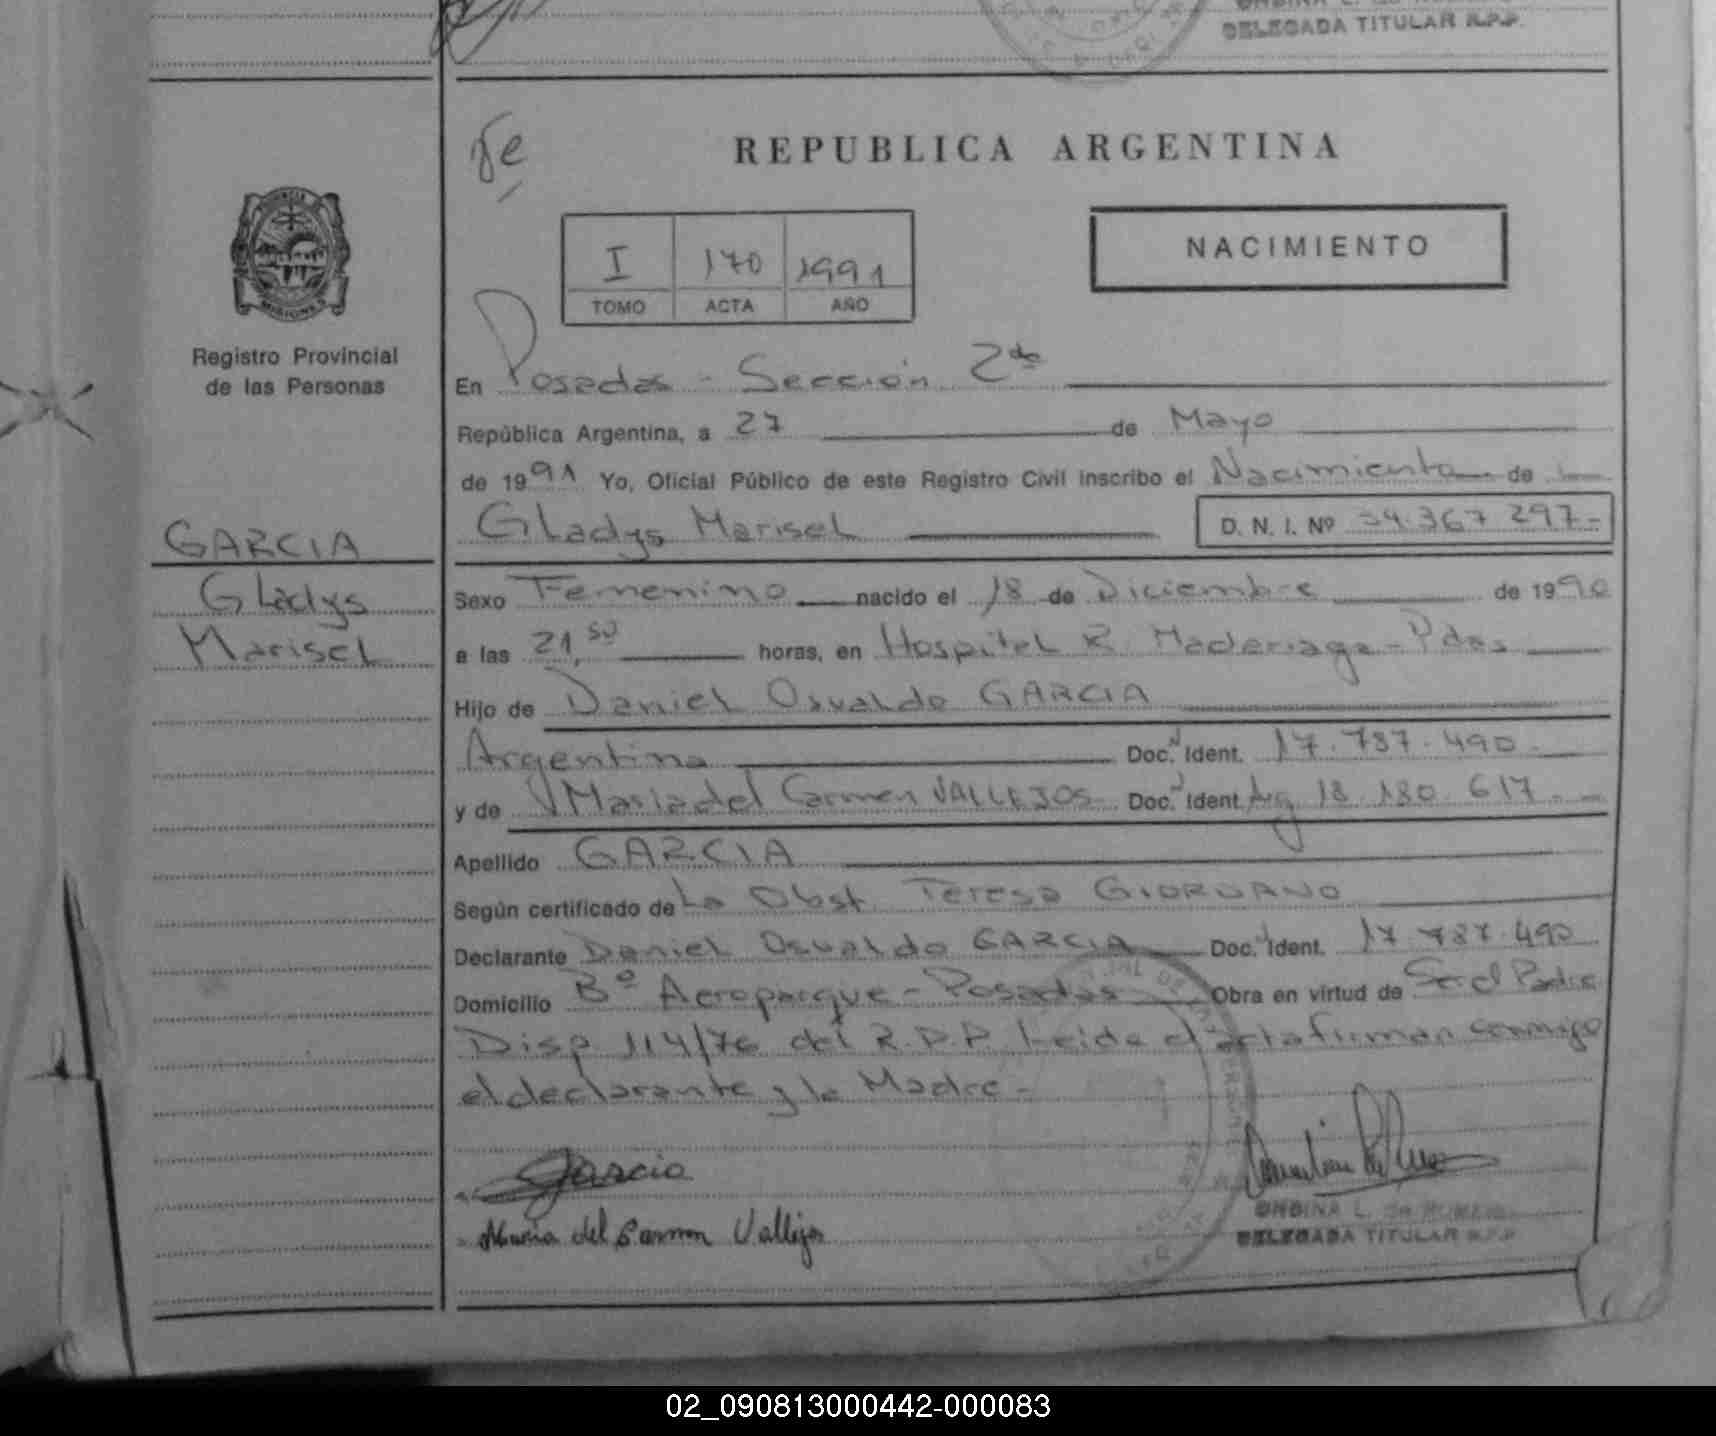 DELEGADA TITULAR R.P.P.
REPUBLICA ARGENTINA
NACIMIENTO
I 170 1991
TOMO ACTA AÑO
PROVINCIA DE MISIONES
Registro Provincial
de las Personas
En Posadas - Sección 2da
República Argentina, a 27 de Mayo
de 1991 Yo, Oficial Público de este Registro Civil inscribo el Nacimiento de
GARCIA
Gladys Marisel
Gladys Marisel D. N. I. Nº 34.367 297-
Sexo Femenino nacido el 18 de Diciembre de 1990
a las 21,50 horas, en Hospital R. Madariaga - Pdas
Hijo de Daniel Osvaldo GARCIA
Argentina Doc. Ident. 17.737.490
y de Maria del Carmen VALLEJOS Doc. Ident. Arg 18.180.617.-
Apellido GARCIA
Según certificado de La Obst. Teresa GIORDANO
Declarante Daniel Osvaldo GARCIA Doc. Ident. 17 737.490
Domicilio Bº Aeroparque - Posadas Obra en virtud de Ser el Padre
Disp 114/76 del R.P.P. Leida el acta firman conmigo
el declarante y la Madre -
Garcia
Maria del Carmen Vallejos
ONDINA L. de
DELEGADA TITULAR R.P.P.
02_090813000442-000083